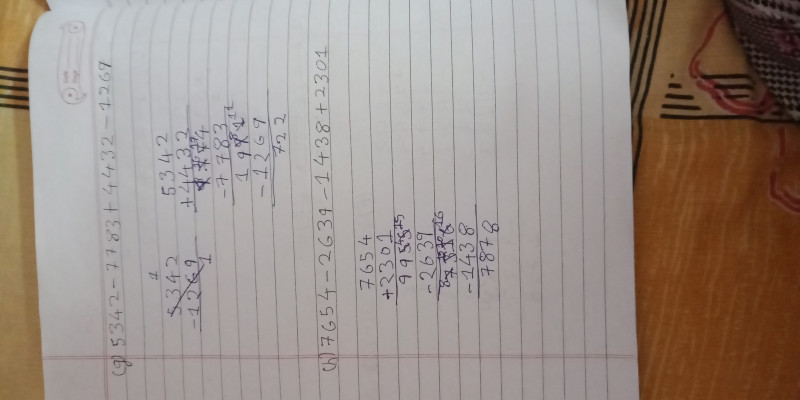 (g) 5342-7783+4432-1269
5342
-1269
1
5342
+4432
9774
-7783
1991
-1269
722
(h) 7654-2639-1438+2301
7654
+2301
9955
-2639
-1438
7878